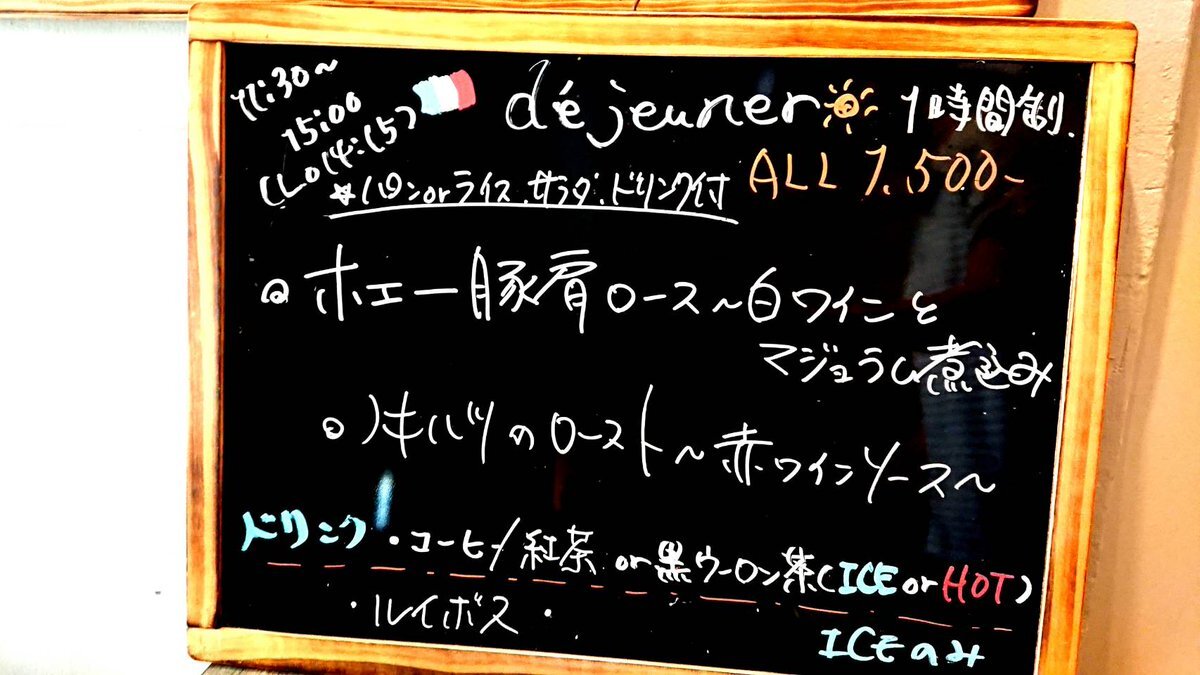 11:30~
15:00
(L.O14:15)
déjeuner 1時間制.
ALL 1.500-
☆パンorライス.サラダ.ドリンク付
◎ホエー豚肩ロース~白ワインと
マジョラム煮込み
◎のロースト~赤ワインソース~
ドリンク・コーヒー/紅茶or黒ウーロン茶(ICEorHOT)
・ルイボス・
ICEのみ